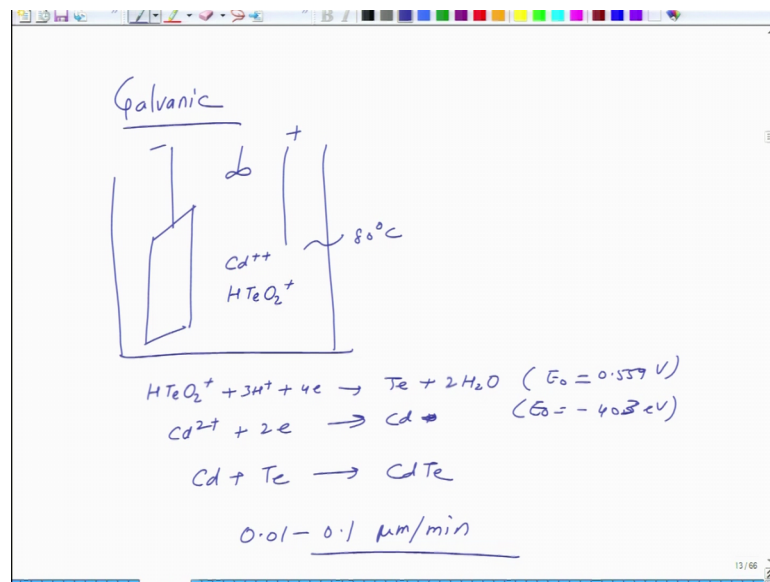 Galvanic
- +
80°C
Cd++
HTeO₂⁺
HTeO₂⁺ + 3H⁺ + 4e → Te + 2H₂O (E₀ = 0.559 V)
Cd²⁺ + 2e → Cd (E₀ = - 403 eV)
Cd + Te → CdTe
0.01 - 0.1 μm/min
13 / 66